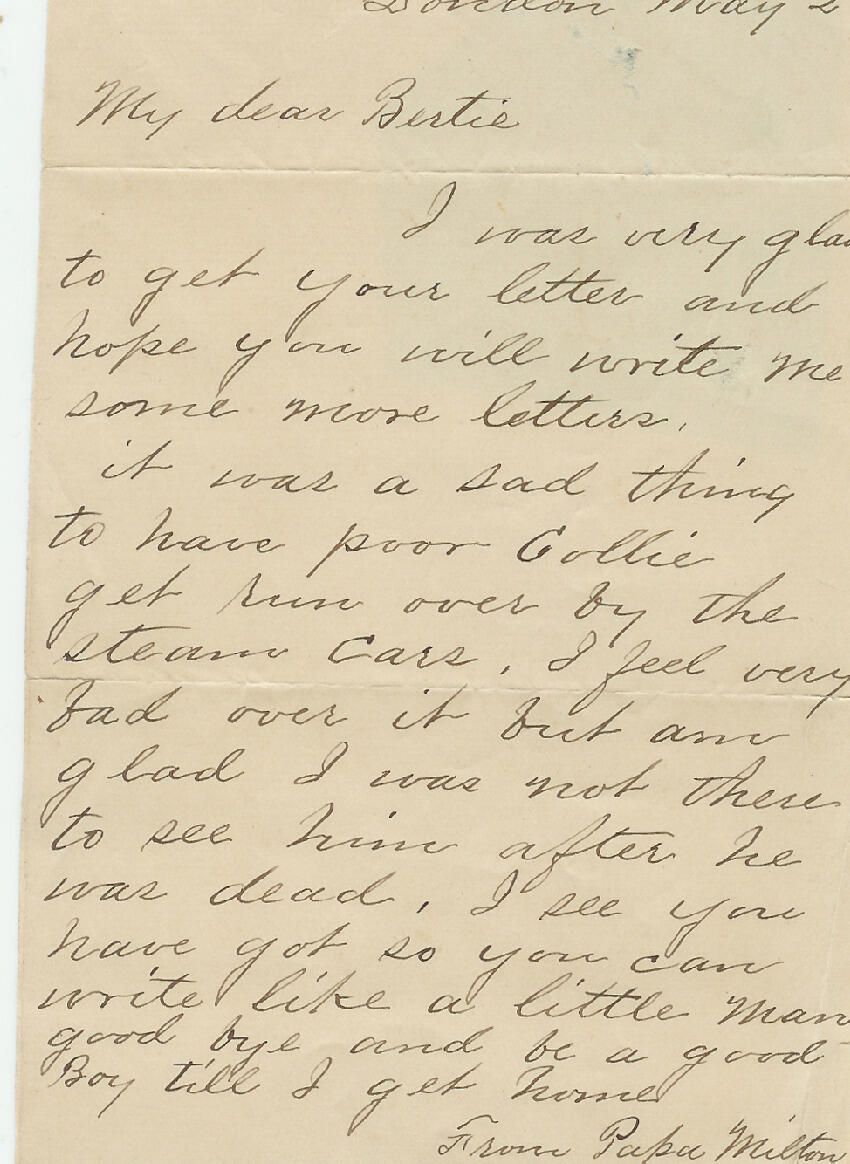 London May 2
My dear Bertie
I was very glad
to get your letter and
hope you will write me
some more letters.
it was a sad thing
to have poor Collie
get run over by the
steam cars. I feel very
bad over it but am
glad I was not there
to see him after he
was dead. I see you
have got so you can
write like a little man
good bye and be a good
Boy till I get home
From Papa Milton